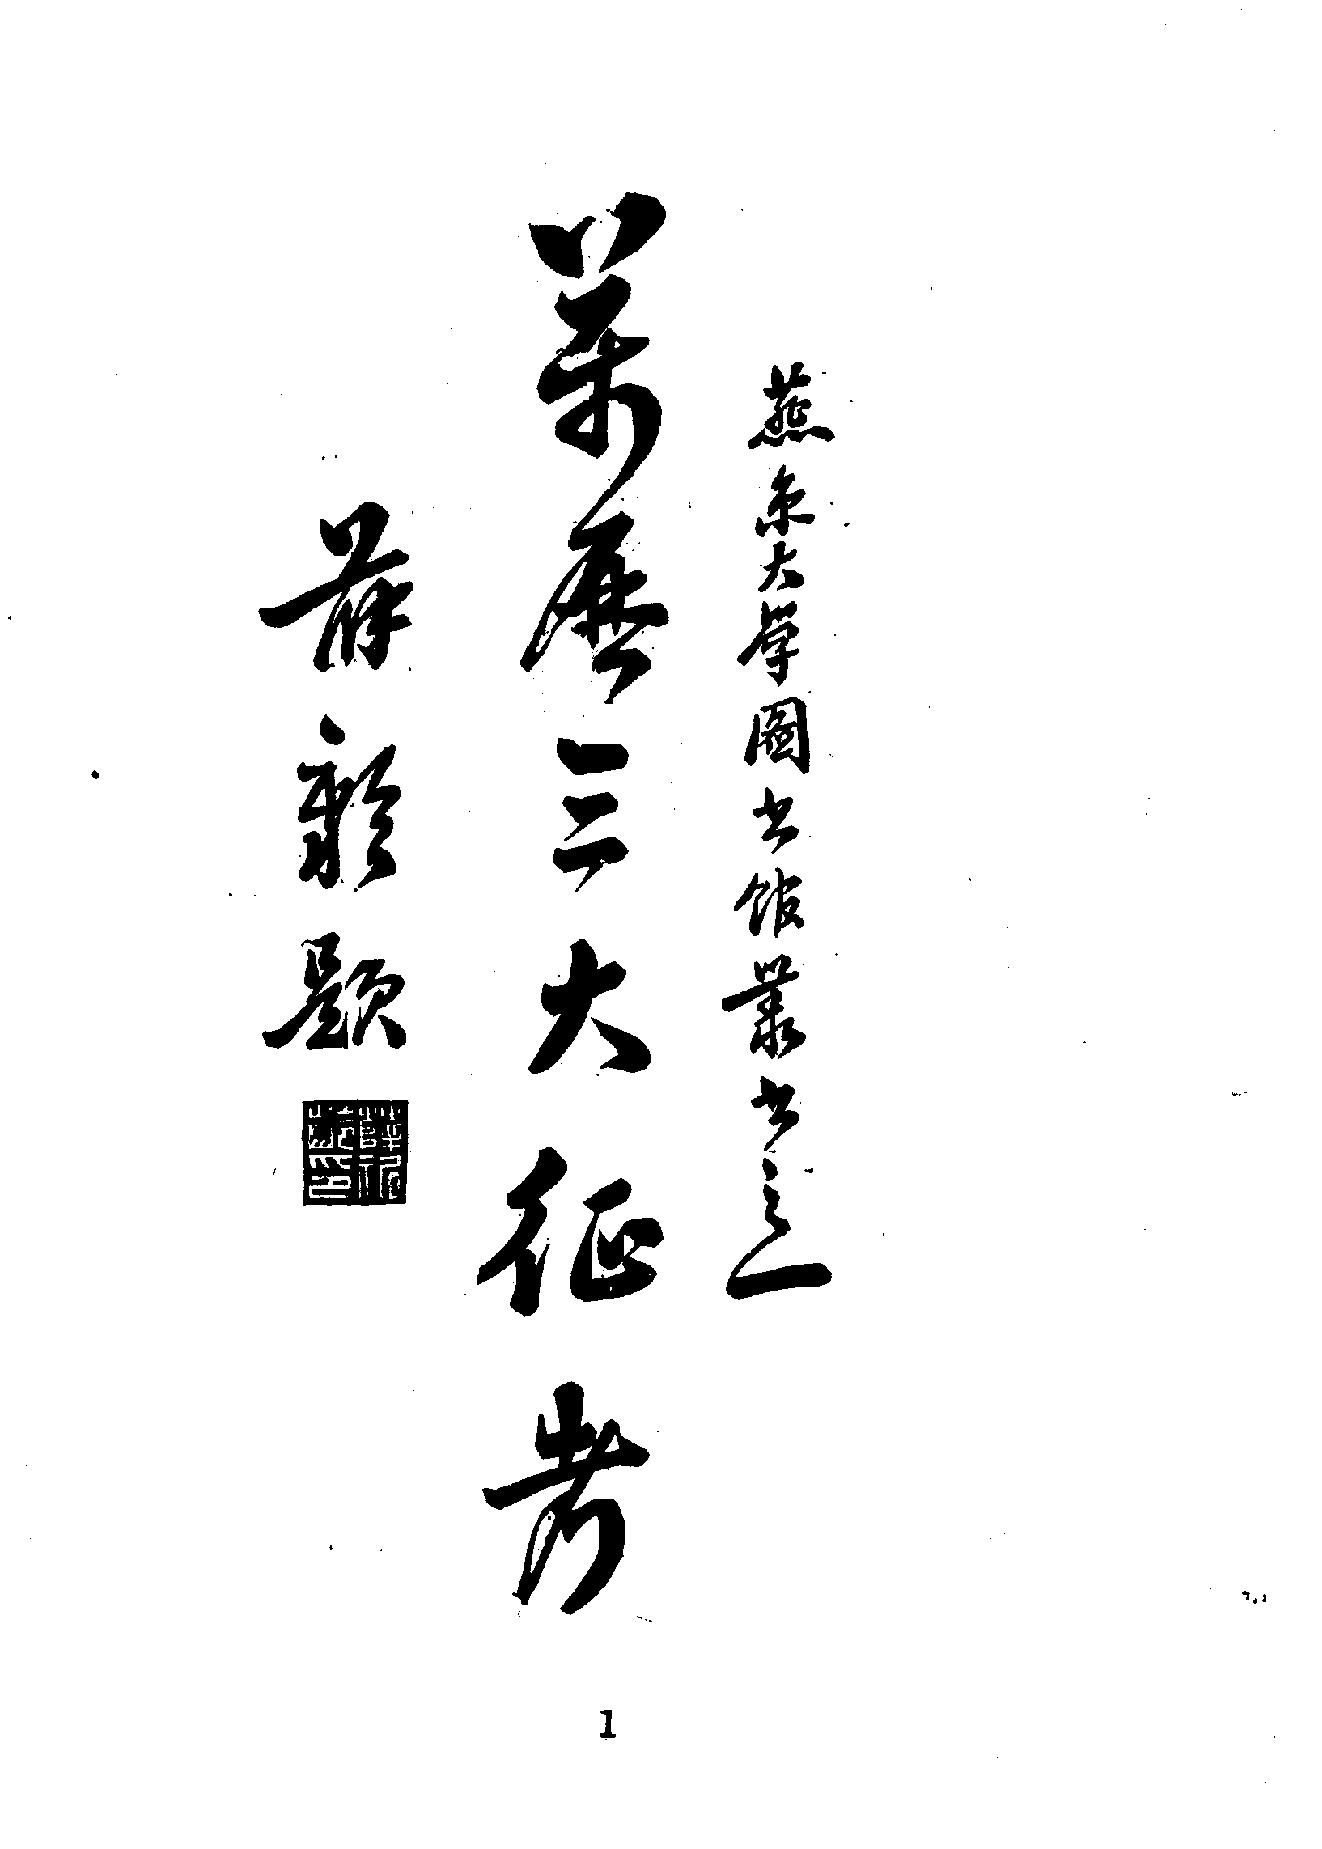 燕京大學圖書館叢書之一
萬曆三大征考
薛瀛題
1